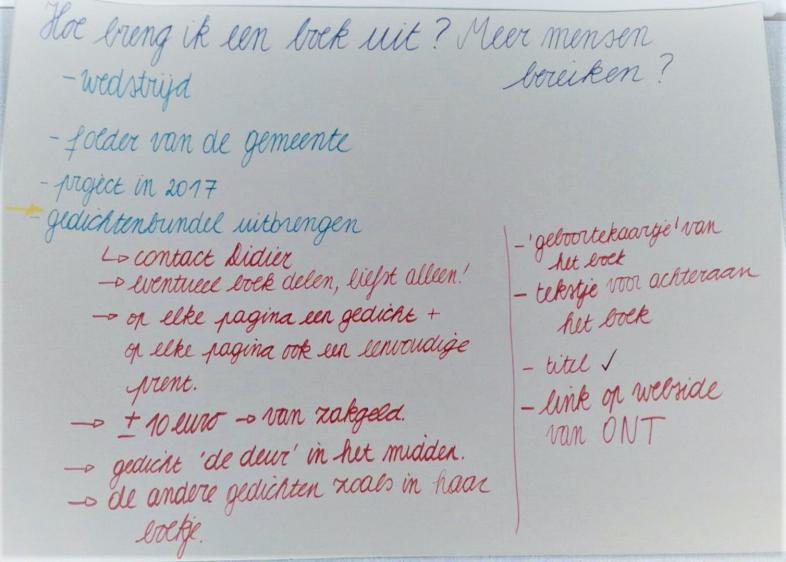 Hoe breng ik een boek uit? Meer mensen
bereiken?
- wedstrijd
- folder van de gemeente
- project in 2017
→ - gedichtenbundel uitbrengen
↳ contact Didier
→ eventueel boek delen, liefst alleen!
→ op elke pagina een gedicht +
op elke pagina ook een eenvoudige
prent.
→ ± 10 euro → van zakgeld.
→ gedicht 'de deur' in het midden.
→ de andere gedichten zoals in haar
boekje.
- 'geboortekaartje' van
het boek
- tekstje voor achteraan
het boek
- titel ✓
- link op webside
van ONT